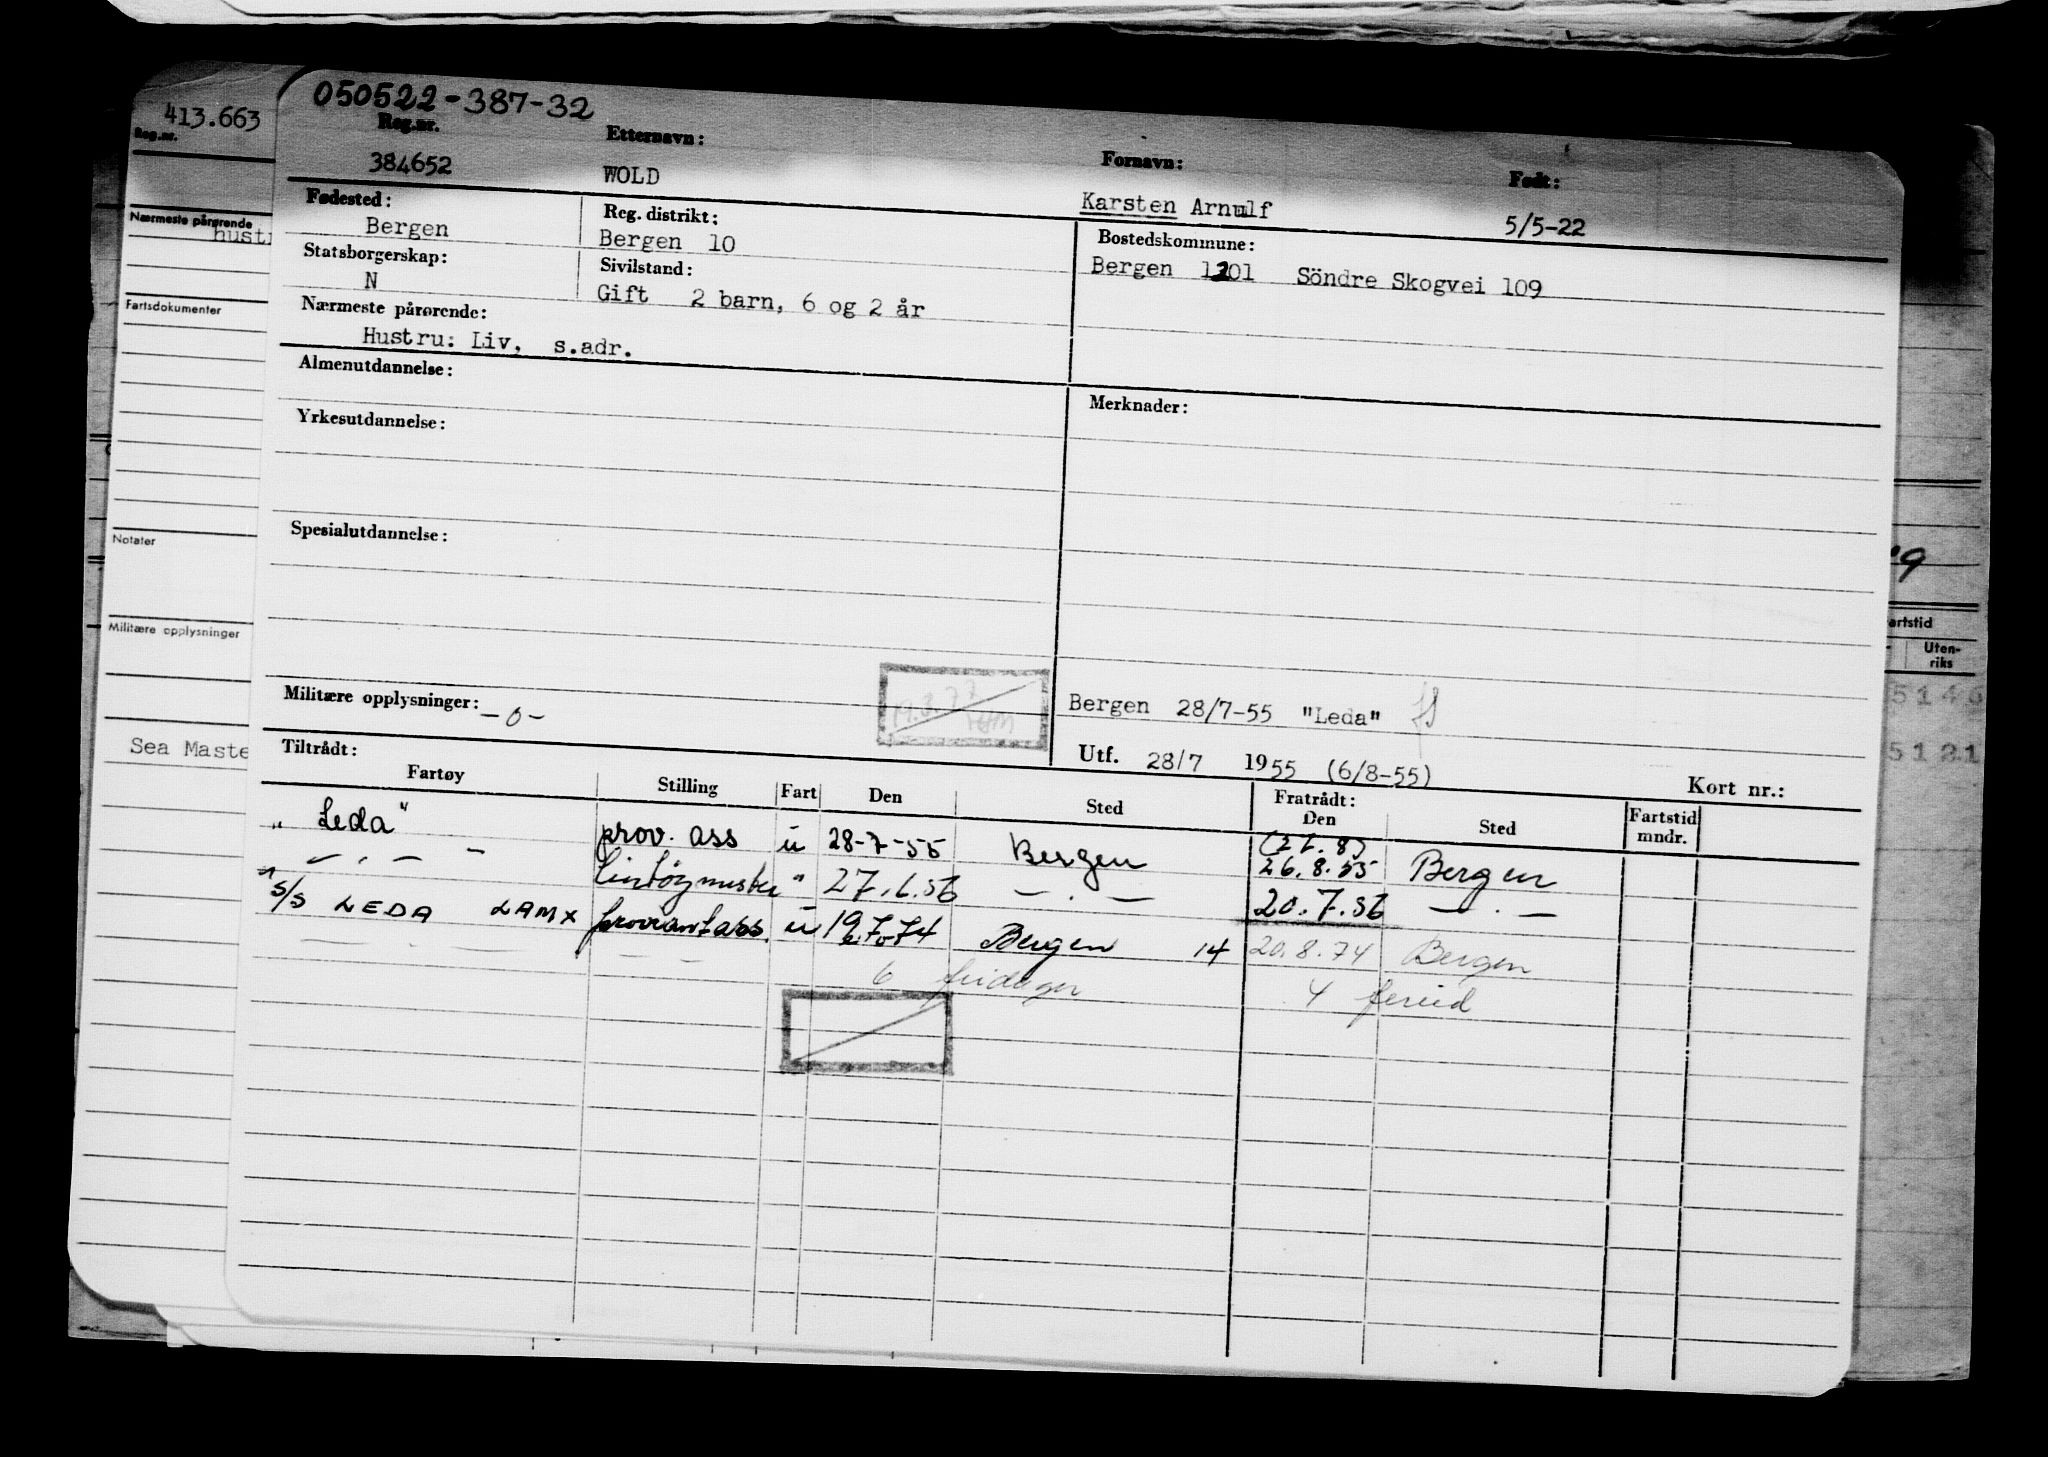 413.663
Reg.nr.
Nærmeste pårørende
Fartsdokumenter
Notater
Militære opplysninger
Sea Maste
050522-387-32
Reg.nr. Etternavn: Fornavn: Født:
384652 WOLD Karsten Arnulf 5/5-22
Fødested: Reg. distrikt: Bostedskommune:
Bergen Bergen 10 Bergen 1201 Söndre Skogvei 109
Statsborgerskap: Sivilstand:
N Gift 2 barn, 6 og 2 år
Nærmeste pårørende:
Hustru: Liv. s.adr.
Almenutdannelse: Merknader:
Yrkesutdannelse:
Spesialutdannelse:
Militære opplysninger: -0- Bergen 28/7-55 "Leda"
Utf. 28/7 1955 (6/8-55) Kort nr.:
Tiltrådt: Fratrådt:
Fartøy Stilling Fart Den Sted Den Sted Fartstid mndr.
"Leda" prov. ass u 28-7-55 Bergen 26.8.55 Bergen
- . - - " - . - 20.7.56 - . -
s/s LEDA LAMX proviantass. u Bergen 14 20.8.74 Bergen
6 fridager 4 feried
artstid
Uten-
riks
5121